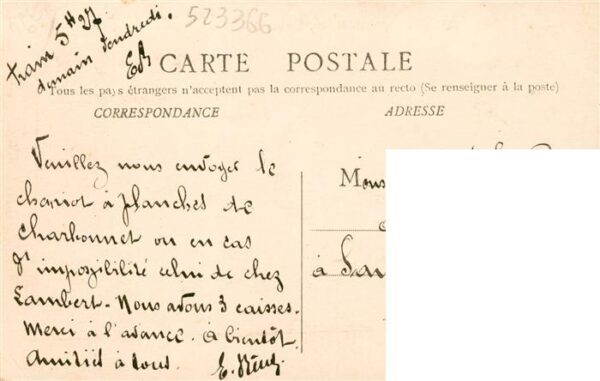 train 5H27
demain vendredi.
EB
523366
CARTE POSTALE
Tous les pays étrangers n'acceptent pas la correspondance au recto (Se renseigner à la poste)
CORRESPONDANCE
ADRESSE
Veuillez nous envoyer le
chariot à planches de
Charbonnet ou en cas
d'impossibilité celui de chez
Lambert. Nous avons 3 caisses.
Merci à l'avance. A bientôt.
Amitiés à tous. E.
Mons
à